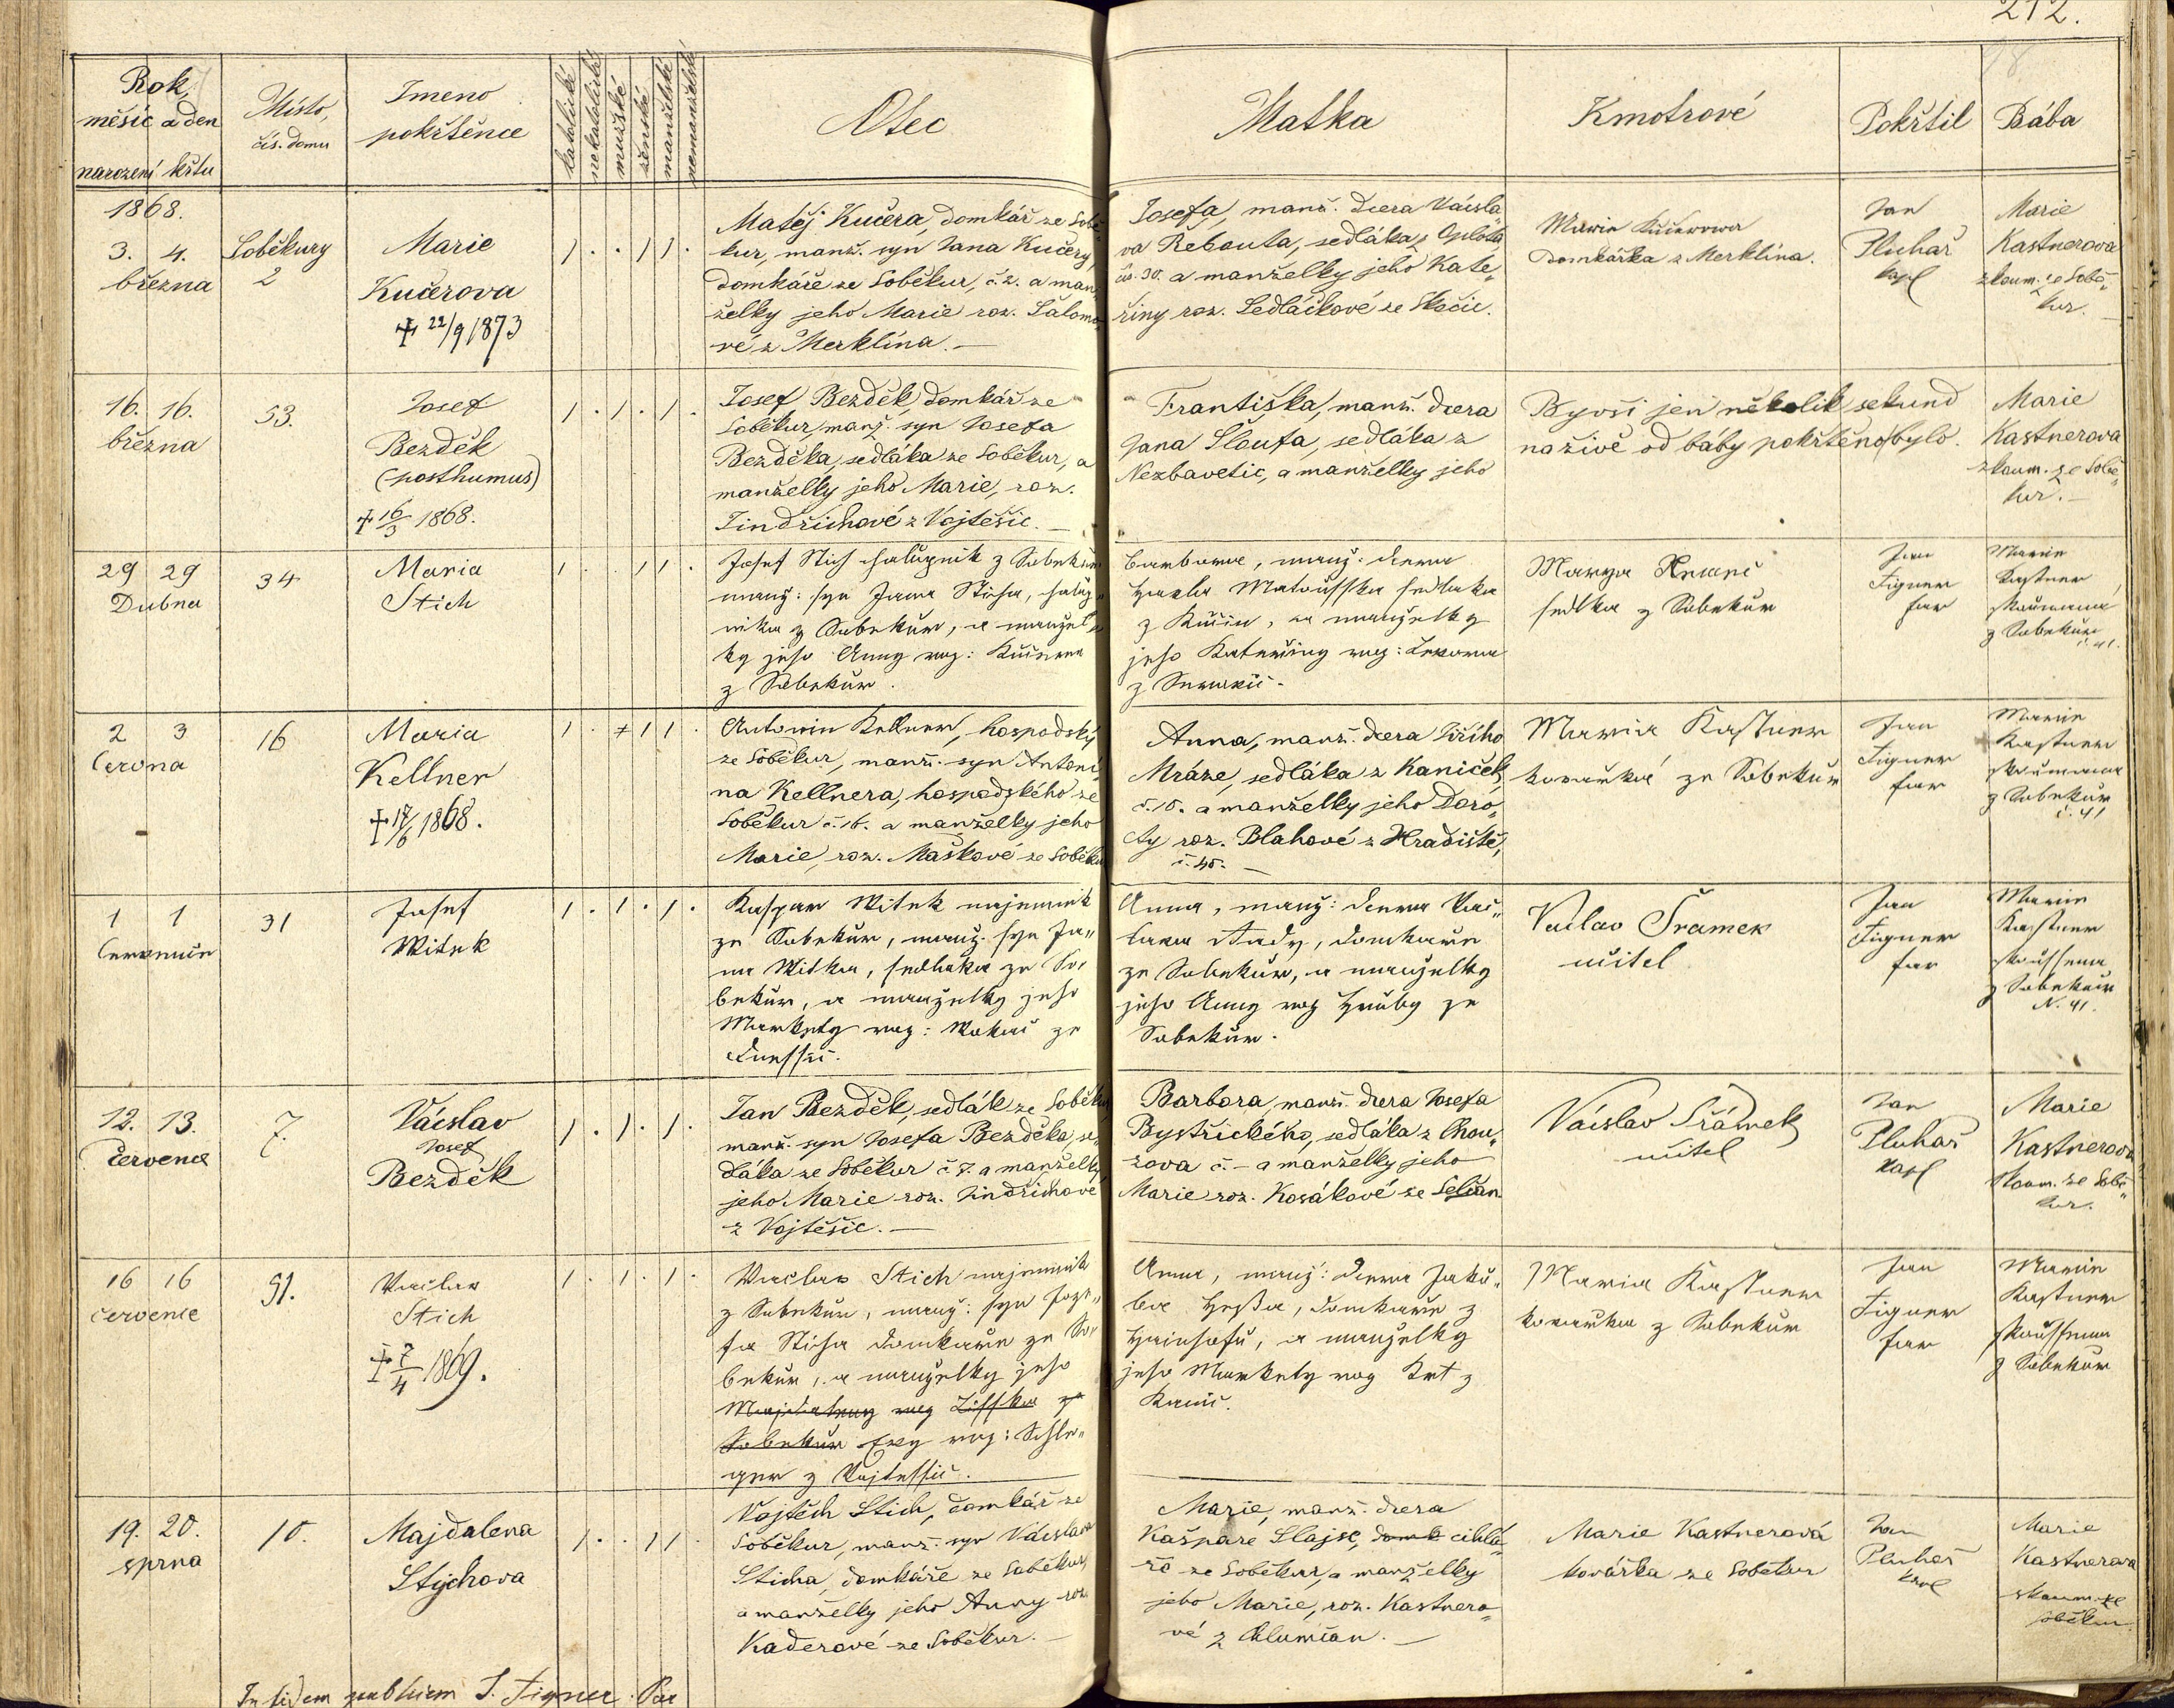 212.
Rok,
měsíc a den
narození křtu
Místo,
čís. domu
Jmeno
pokřtěnce
katolické
nekatolické
mužské
ženské
manželské
nemanželské
Otec
Matka
Kmotrové
Pokřtil
Bába
1868.
3. 4.
března
Soběkury
2
Marie
Kučerova
† 22/9 1873
1 . . 1 1 .
Matěj Kučera, domkář ze Sobě-
kur, manž. syn Jana Kučery,
domkáře ze Soběkur, č. 2. a man-
želky jeho Marie roz. Šalomo-
vé z Merklína. —
Josefa, manž. dcera Václa-
va Rebouta, sedláka z
čís. 30. a manželky jeho Kate-
řiny roz. Sedláčkové ze Skočic.
Marie Kučerowa
domkářka z Merklína.
Jan
Pluhař
kapl
Marie
Kastnerova
zkoum. ze Sobě-
kur.
16. 16.
března
53.
Josef
Bezděk
(posthumus)
† 16/3 1868.
1 . 1 . 1 .
Josef Bezděk, domkář ze
Soběkur, manž. syn Josefa
Bezděka, sedláka ze Soběkur, a
manželky jeho Marie, roz.
Jindřichové z Vojtěšic. —
Františka, manž. dcera
Jana Šloufa, sedláka z
Nezbavetic, a manželky jeho
Byvši jen několik sekund
na živě od báby pokřtěno bylo.
Marie
Kastnerova
zkoum. ze Sobě-
kur. —
29 29
Dubna
34
Maria
Stich
1 . . 1 1 .
Josef Stich chalupnik z Sobekur
manž: syn Jana Sticha, chalup-
nika z Sobekur, a manžel-
ky jeho Anny roz: Kučerea
z Sobekur.
Barbora, manž: dcera
Matoušska sedlaka
z Kučin, a manželky
jeho Kateřiny roz:
z
Marya
sedlka z Sobekur
Jan
Figner
far
Marie
Kastner
skoumana
z Sobekur
č. 41.
2 3
Června
16
Maria
Kellner
† 17/6 1868.
1 . 1 1 .
Antonin Kellner, hospodský
ze Soběkur, manž. syn Antoni-
na Kellnera, hospodského ze
Soběkur č. 16. a manželky jeho
Marie, roz. Maškové ze Soběkur
Anna, manž. dcera Jiřího
Mráze, sedláka z Kaniček,
č. 10. a manželky jeho Doro-
ty roz. Blahové z Hradiště,
č. 45. —
Maria Kastner
kovařka ze Sobekur
Jan
Figner
far
Marie
Kastner
skoumana
z Sobekur
č. 41
1 1
Července
31
Josef
Witek
1 . 1 . 1 .
Kaspar Witek najemnik
ze Sobekur, manž. syn Ja-
na Witka, sedlaka ze So-
bekur, a manželky jeho
Markety roz: Wokač ze
Anna, manž: dcera Vac-
lava Rady, domkaře
ze Sobekur, a manželky
jeho Anny roz Hruby ze
Sobekur.
Vaclav Šramek
učitel
Jan
Figner
far
Marie
Kastner
skoušena
z Sobekur
N. 41.
12. 13.
července
7.
Václav
Josef
Bezděk
1 . 1 . 1 .
Jan Bezděk, sedlák ze Soběkur
manž. syn Josefa Bezděka, se-
dláka ze Soběkur č. 7. a manželky
jeho Marie roz. Jindřichové
z Vojtěšic. —
Barbora, manž. dcera Josefa
Bystřického, sedláka z Chou-
zova č. – a manželky jeho
Marie roz. Kosákové ze Selčan
Václav Šrámek
učitel
Jan
Pluhař
kapl
Marie
Kastnerova
zkoum. ze Sobě-
kur.
16 16
července
51.
Vaclav
Stich
† 7/4 1869.
1 . 1 . 1 .
Vaclav Stich najemnik
z Sobekur, manž: syn Joze-
fa Sticha domkaře ze So-
bekur, a manželky jeho
Majdaleny roz Lisska ze
Sobekur Evy roz: Schle-
ger z Vojtessic.
Anna, manž: dcera Jaku-
ba Hessa, domkaře z
a manželky
jeho Markety roz Krt z
Kanic.
Maria Kastner
kovařka z Sobekur
Jan
Figner
far
Marie
Kastner
skoušena
z Sobekur
19. 20.
srpna
10.
Majdalena
Stychova
1 . . 1 1 .
Vojtěch Stich, domkář ze
Soběkur, manž. syn Václava
Sticha, domkáře ze Soběkur,
a manželky jeho Anny roz.
Kaderové ze Soběkur. —
Marie, manž. dcera
Kašpara Slajse, domk cihlá-
ře ze Soběkur, a manželky
jeho Marie, roz. Kastnero-
vé z Chlumčan. —
Marie Kastnerová
kovářka ze Soběkur
Jan
Pluhař
kapl
Marie
Kastnerova
skoum. ze
Soběkur.
In fidem publicam J. Figner. Par